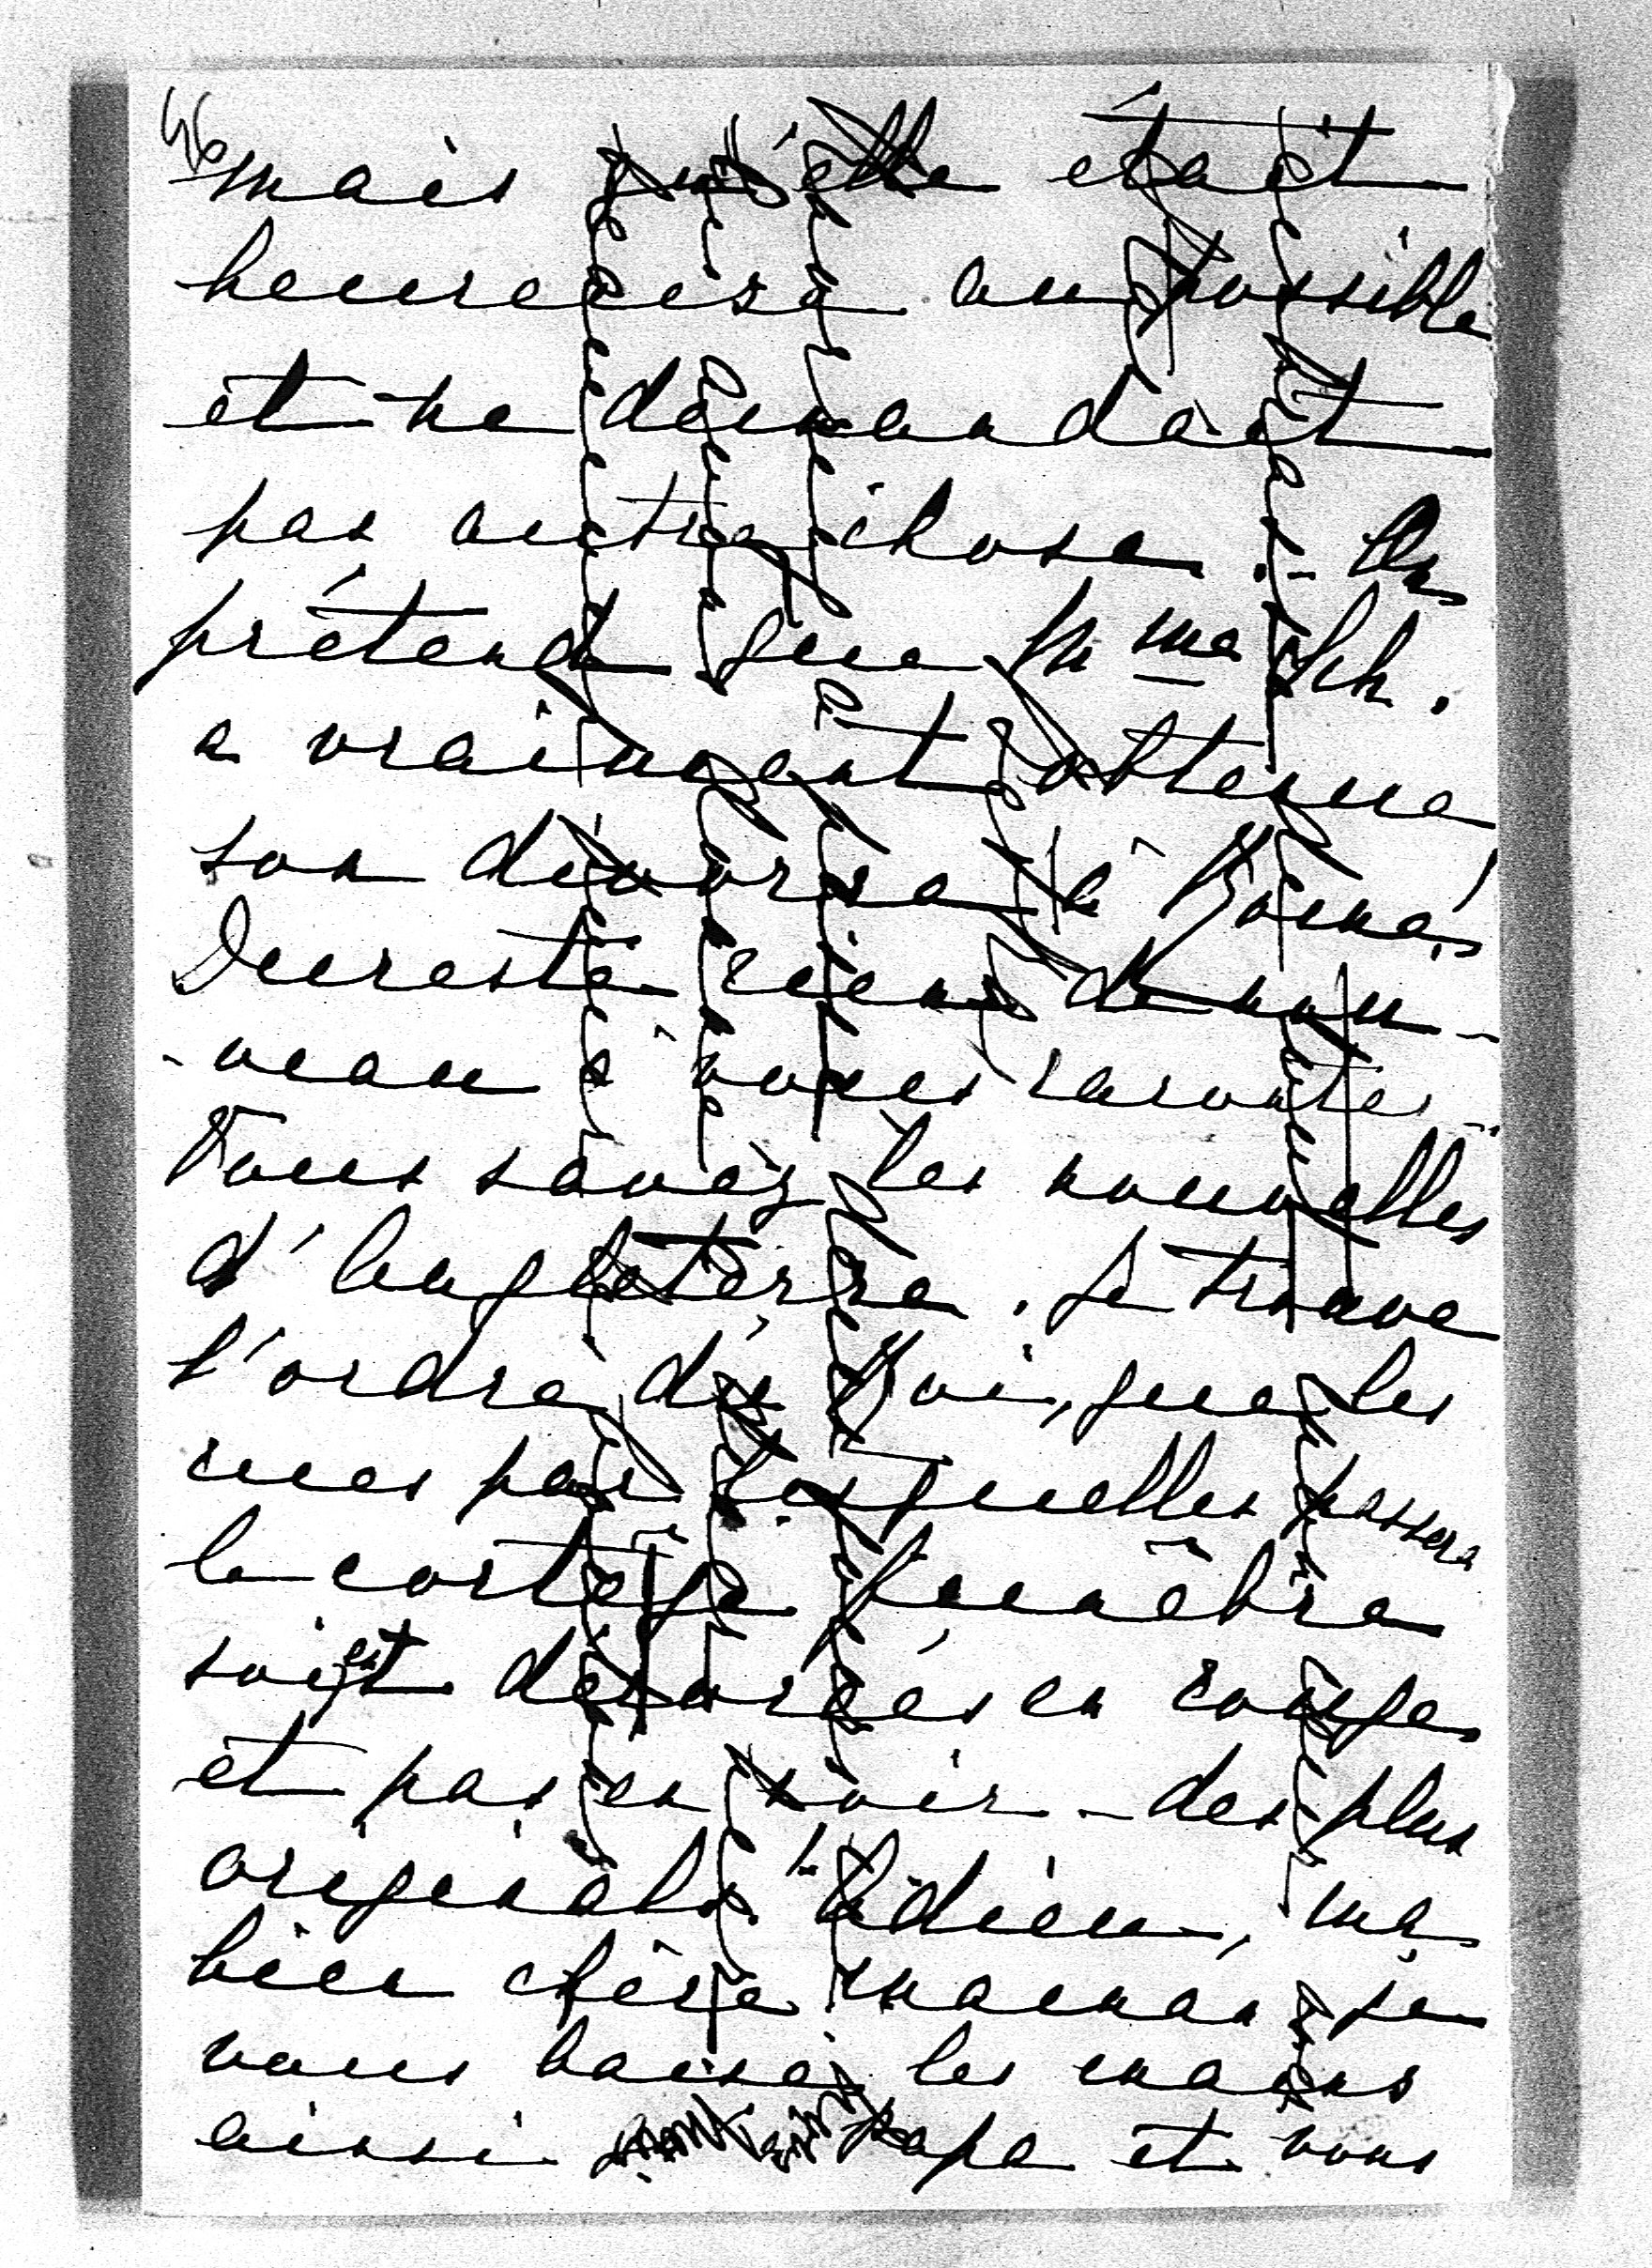 46
mais qu'elle était
heureuse au possible
et ne demandait
pas autre chose. - On
prétend que Mme Sch.
a vraiment obtenue
son divorce à Rome!
Du reste rien de nou-
-veau à vous raconter.
Vous savez les nouvelles
d'Angleterre. Je trouve
l'ordre du Roi, que les
rues par lesquelles passera
le cortège funèbre
soient décorées en rouge
et pas en noir - des plus
originals. Adieu, ma
bien chère maman, je
vous baise les mains
ainsi Papa et vous